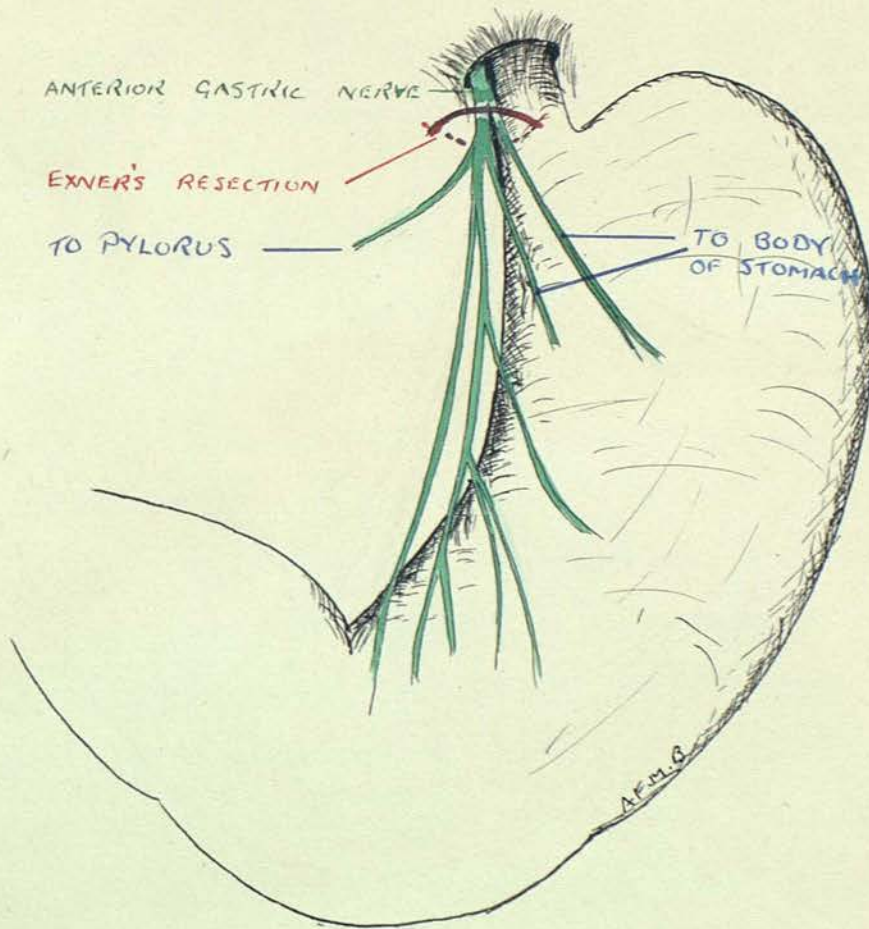 ANTERIOR GASTRIC NERVE
EXNER'S RESECTION
TO PYLORUS
TO BODY
OF STOMACH
A.F.M.B